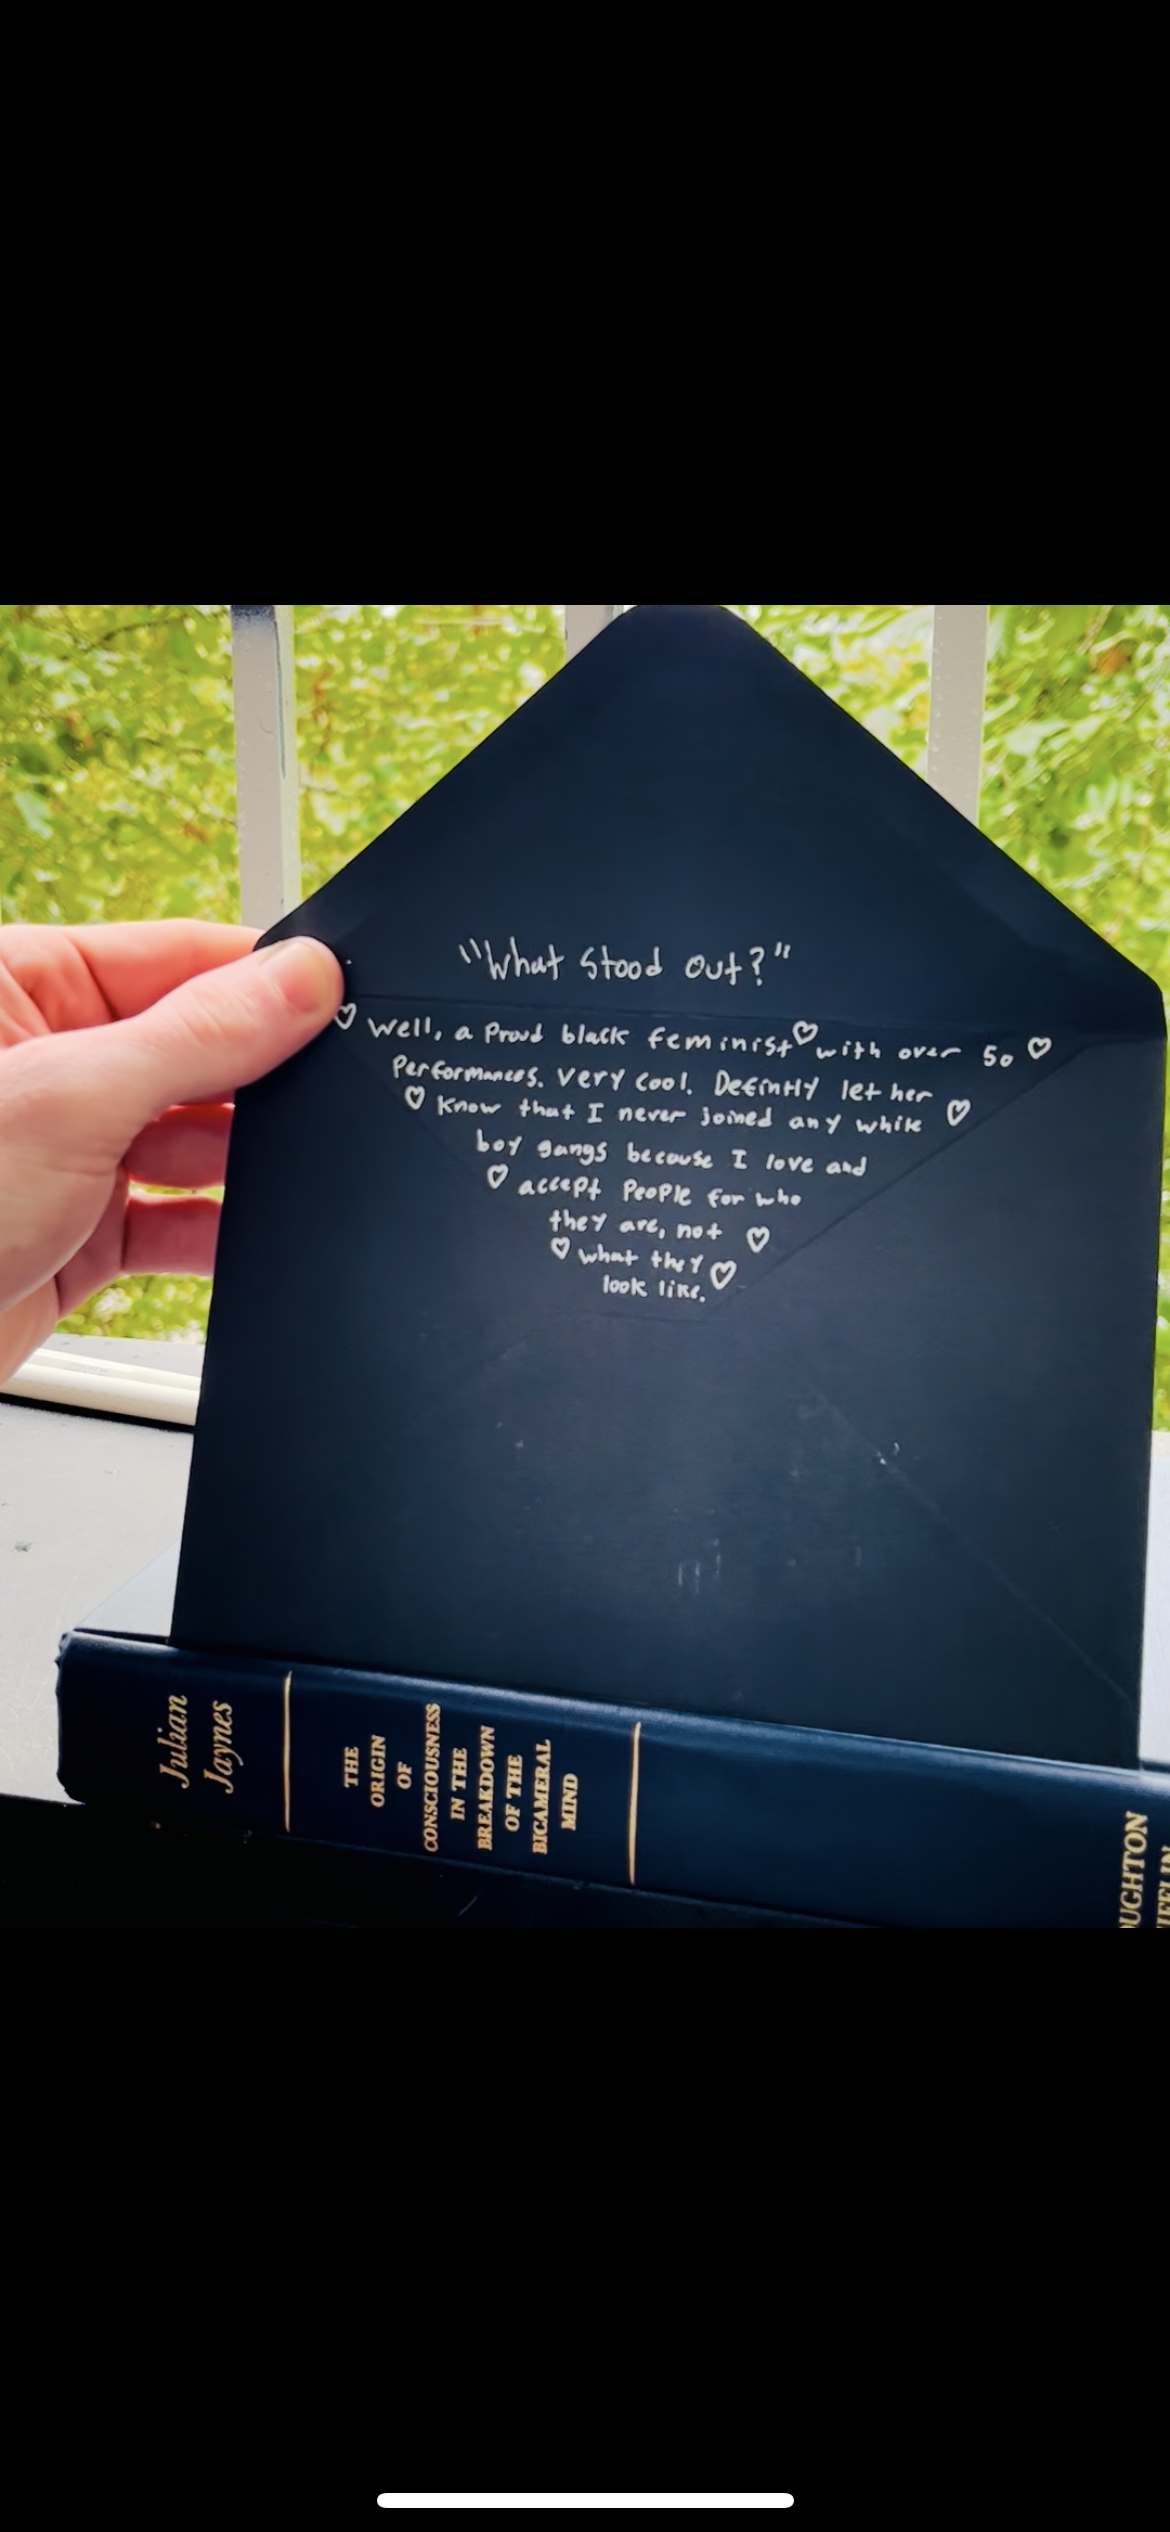 "What Stood Out?"
♡ Well, a Proud black feminist ♡ with over 50 ♡
Performances. Very cool. Defintly let her
♡ Know that I never joined any white ♡
boy gangs because I love and
♡ accept People for who
they are, not ♡
♡ what they ♡
look like.
Julian
Jaynes
THE
ORIGIN
OF
CONSCIOUSNESS
IN THE
BREAKDOWN
OF THE
BICAMERAL
MIND
OUGHTON